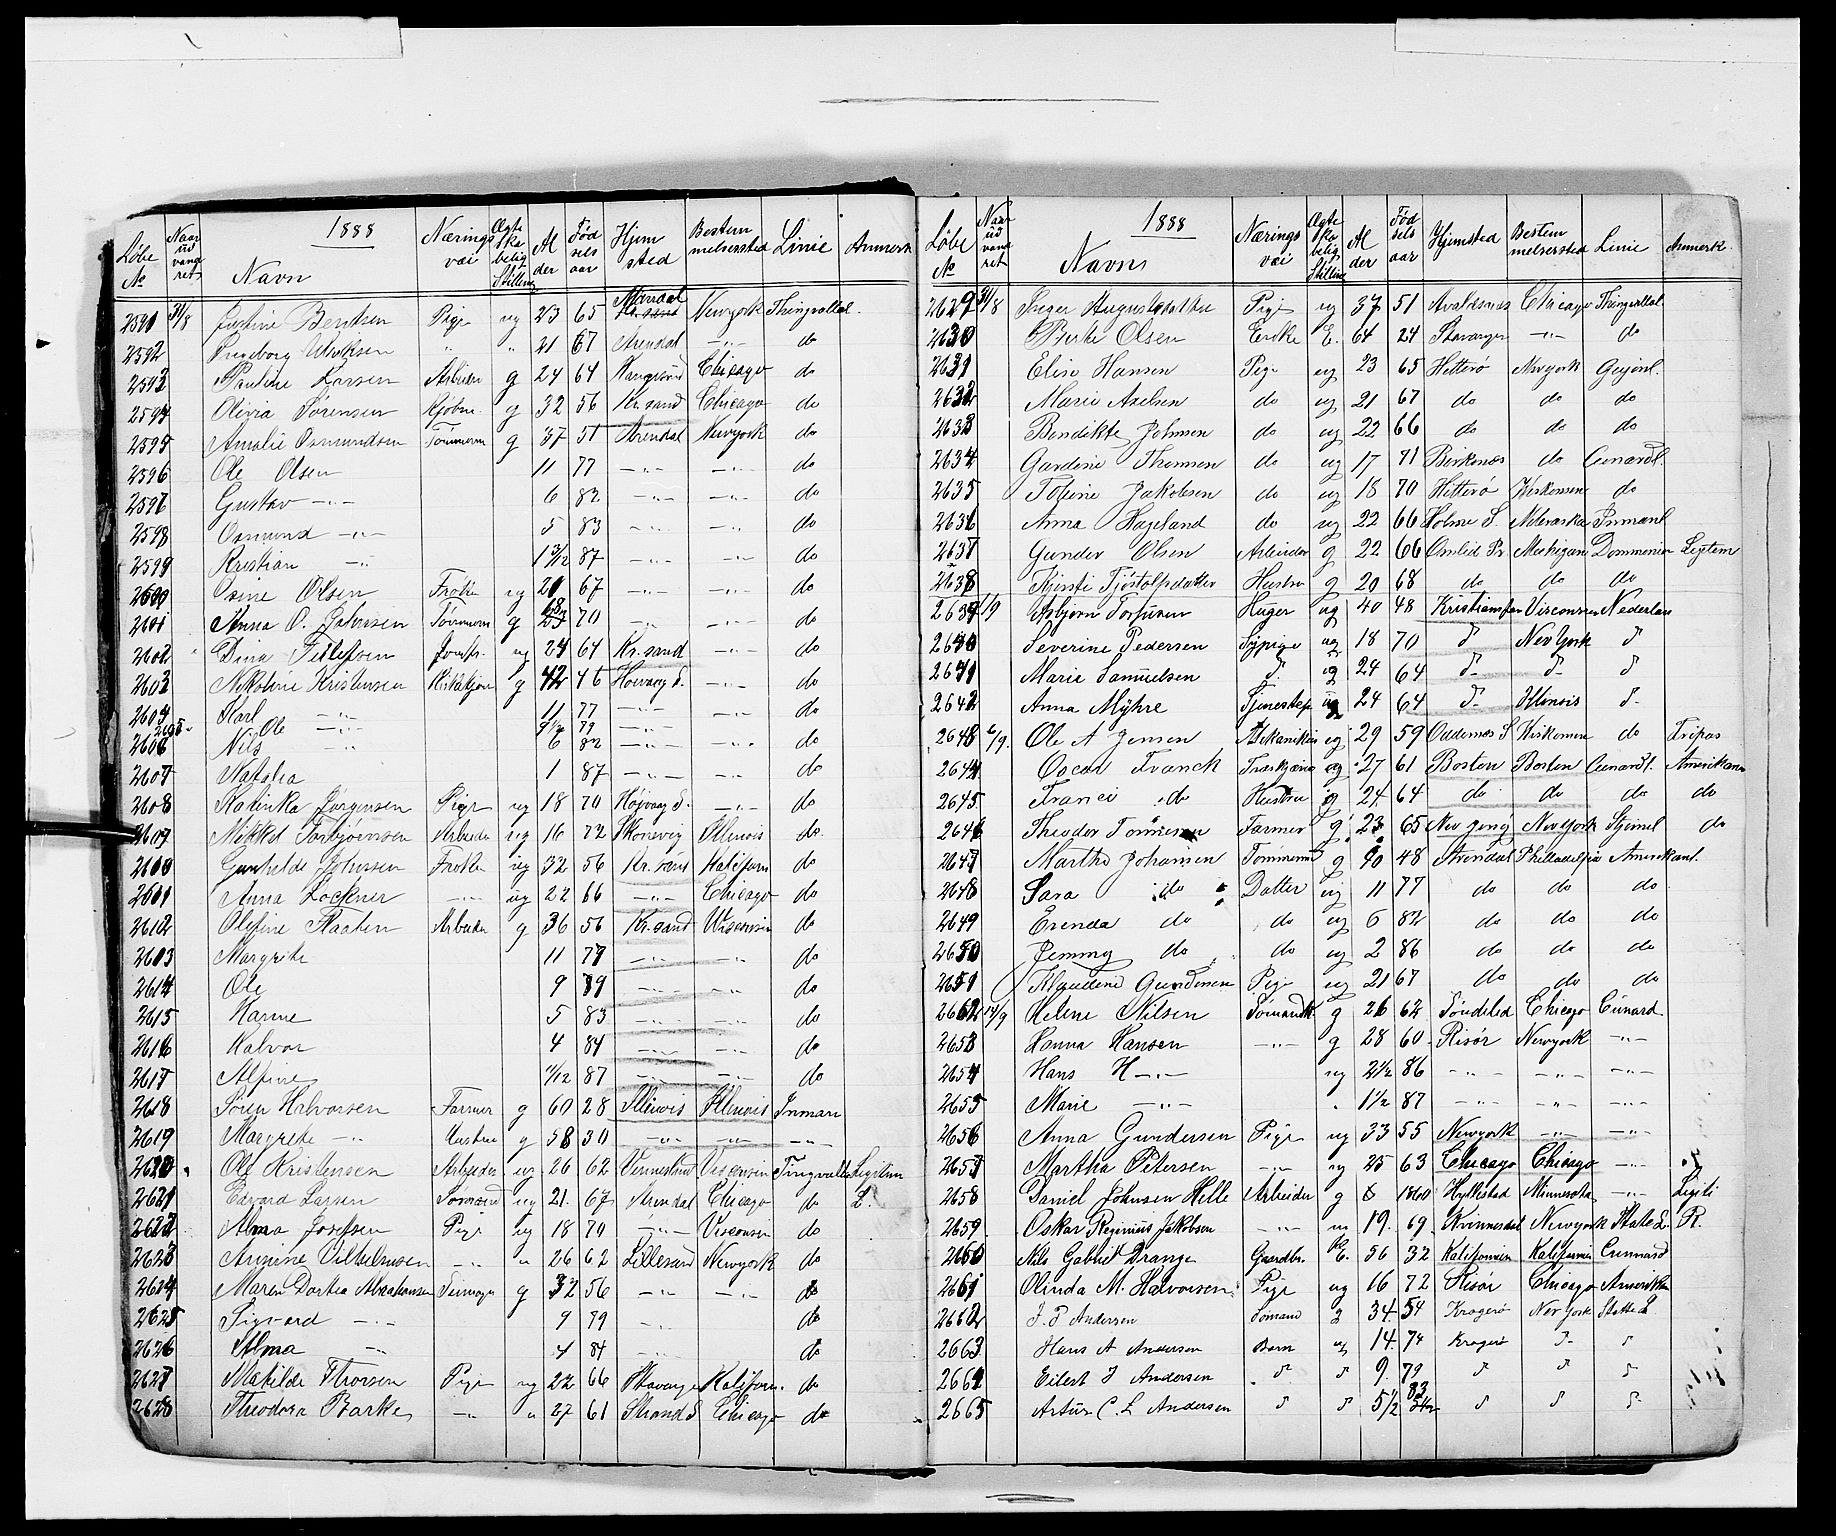 1888
Løbe No Naar udvandret Navn Nærings vei Ægteskabelig Stilling Alder Fødselsaar Hjemsted Bestemmelsessted Linie Anmerk
2591 31/8 Justine Bentsen Pige ug 23 65 Mandal Newyork Thingvalla l.
2592 Ingeborg " " 21 67 Arendal -"- do
2593 Pauline Larsen Arbeider g 24 64 Chicago do
2594 Olivia Sørensen g 32 56 Kr.sand Chicago do
2595 Amalie Osmundsen Tømmerm g 37 51 Arendal Newyork do
2596 Ole Olsen 11 77 -"- -"- do
2597 Gustav -"- 6 82 -"- -"- do
2598 Osmund -"- 5 83 -"- -"- do
2599 Kristian -"- 1 3/12 87 -"- -"- do
2600 Osine Olsen Frøken ug 21 67 -"- -"- do
2601 Anna O. Johnsen Tømmerm g 70 -"- -"- do
2602 Dina Tellefsen Jomfr. ug 24 64 Kr.sand -"- do
2603 Nikoline Kristensen g 42 46 Høivaag S. -"- do
2604 Karl -"- 11 77 -"- do
2605 Ole 79 -"- -"-
2606 Nils -"- 6 82 -"- -"- do
2607 Natalia 1 87 -"- -"- do
2608 Kalinka Jørgensen Pige ug 18 70 Højvaag S. -"- do
2609 Mikkel Torbjørnsen Arbeider ug 16 72 Skonevig Illinois do
2610 Gunhilde Johnsen Frøken ug 32 56 Kr.sand Kaliforn do
2611 Anna Lochner -"- ug 22 66 -"- Chicago do
2612 Olefine Staalen Arbeider g 36 56 Kr.sand Wisconsin do
2613 Margrite 11 77 -"- -"- do
2614 Ole 9 79 -"- -"- do
2615 Hanne 5 83 -"- -"- do
2616 Halvor 4 84 -"- -"- do
2617 Alfine 11/12 87 -"- -"- do
2618 Søren Halvorsen Farmer g 60 28 Illinois Illinois Inman
2619 Margrete -"- Hustru g 58 30 -"- -"- -"-
2620 Ole Kristensen Arbeider ug 26 62 Vennesland Visconsin Tingvalla Legitim
2621 Edvard Larsen Sømand ug 21 67 Arendal Chicago do L.
2622 Alma Josefsen Pige ug 18 70 -"- Visconsin do
2623 Annine Vilhelmsen -"- " 26 62 Lillesand Newyork do
2624 Maren Dortea Abrahamsen g 32 56 -"- -"- do
2625 Sigvard -"- 9 79 -"- do
2626 Alma -"- 4 84 -"- do
2627 Matilde Thorsen Pige ug 22 66 Stavanger Kaliforn. do
2628 Theodora Barke -"- " 27 61 Strand S. Chicago do
1888
Løbe No Naar udvandret Navn Nærings vei Ægteskabelig Stilling Alder Fødselsaar Hjemsted Bestemmelsessted Linie Anmerk.
2629 31/8 Inger Pige ug 37 51 Avaldsnes Chicago Thingvallal.
2630 Berte Olsen Enke E. 64 24 Stavanger -"- do
2631 Elise Hansen Pige ug 23 65 Hitterø Newyork
2632 Marie Axelsen do ug 21 67 do do do
2633 Bendikte Johnsen do ug 22 66 do do do
2634 Gurdine Thomsen do ug 17 71 do Cunardl.
2635 Toline Jakobsen do ug 18 70 Hitterø do
2636 Anna Hageland do ug 22 66 Holme S. Nebraska Inmanl
2637 Gunder Olsen Arbeider g 22 66 Omlid Pr Michigan Dommenion Legitem
2638 Kjersti Tjøstolfsdatter Hustru g 20 68 do do do
2639 1/9 Asbjørn ug 40 48 Kristiansan Visconsin Nederlan
2640 Severine Pedersen Sypige ug 18 70 d NewYork d
2641 Maria Samuelsen d. g 24 64 d- d- d
2642 Anna Myhre ug 24 64 d- Illinois d-
2643 6/9. Ole A Jensen Mekanikus ug 29 59 Oddernes S do
2644 Oscar Franck ug 27 61 Boston Boston Cunardl. Amerikan
2645 Franci do Hustru g 24 64 do do do do
2646 Theodor Farmer g 23 65 New York do
2647 Marthe Johansen Tømmerm g 40 48 Arendal Philladelfia Amerikanl.
2648 Sara do Datter ug 11 77 do do do
2649 Erenda do do ug 6 82 do do do
2650 Jemmy do do ug 2 86 do do do
2651 Klaudine Gundersen Pige ug 21 67 do do do
2652 13/9 Helene Nilsen Sømandk g 26 62 Søndeled Chicago Cunard
2653 Hanna Hansen -"- g 28 60 Risør Newyork -"-
2654 Hans H-"- ug 2½ 86 -"- -"- -"-
2655 Marie -"- 1½ 87 -"- -"- -"-
2656 Anna Gundersen Pige ug 33 55 Newyork -"- -"-
2657 Martha Petersen -"- ug 25 63 Chicago Chicago -"-
2658 Daniel Johnsen Helle Arbeider g 1860 Hyllestad Minnesota -"- Legiti
2659 Oskar Reginius Jakobsen -"- 19. 69. Kvinnesdal Newyork State L. R.
2660 Nils Gabriel Drange Gaardbr. E. 56 32 Kalifornien Kalifornien Cunnard
2661 Olinda M. Halvorsen Pige ug 16 72 Risør Chicago Amerikan
2662 J. P Andersen Sømand g 34. 54 Kragerø New York Statte L
2663 Hans A Andersen Barn ug 14. 74 Kragerø d- d
2664 Eilert J Andersen d d 9. 79 d d d
2665 Artur C. L Andersen d d 5½ 83 d d d-